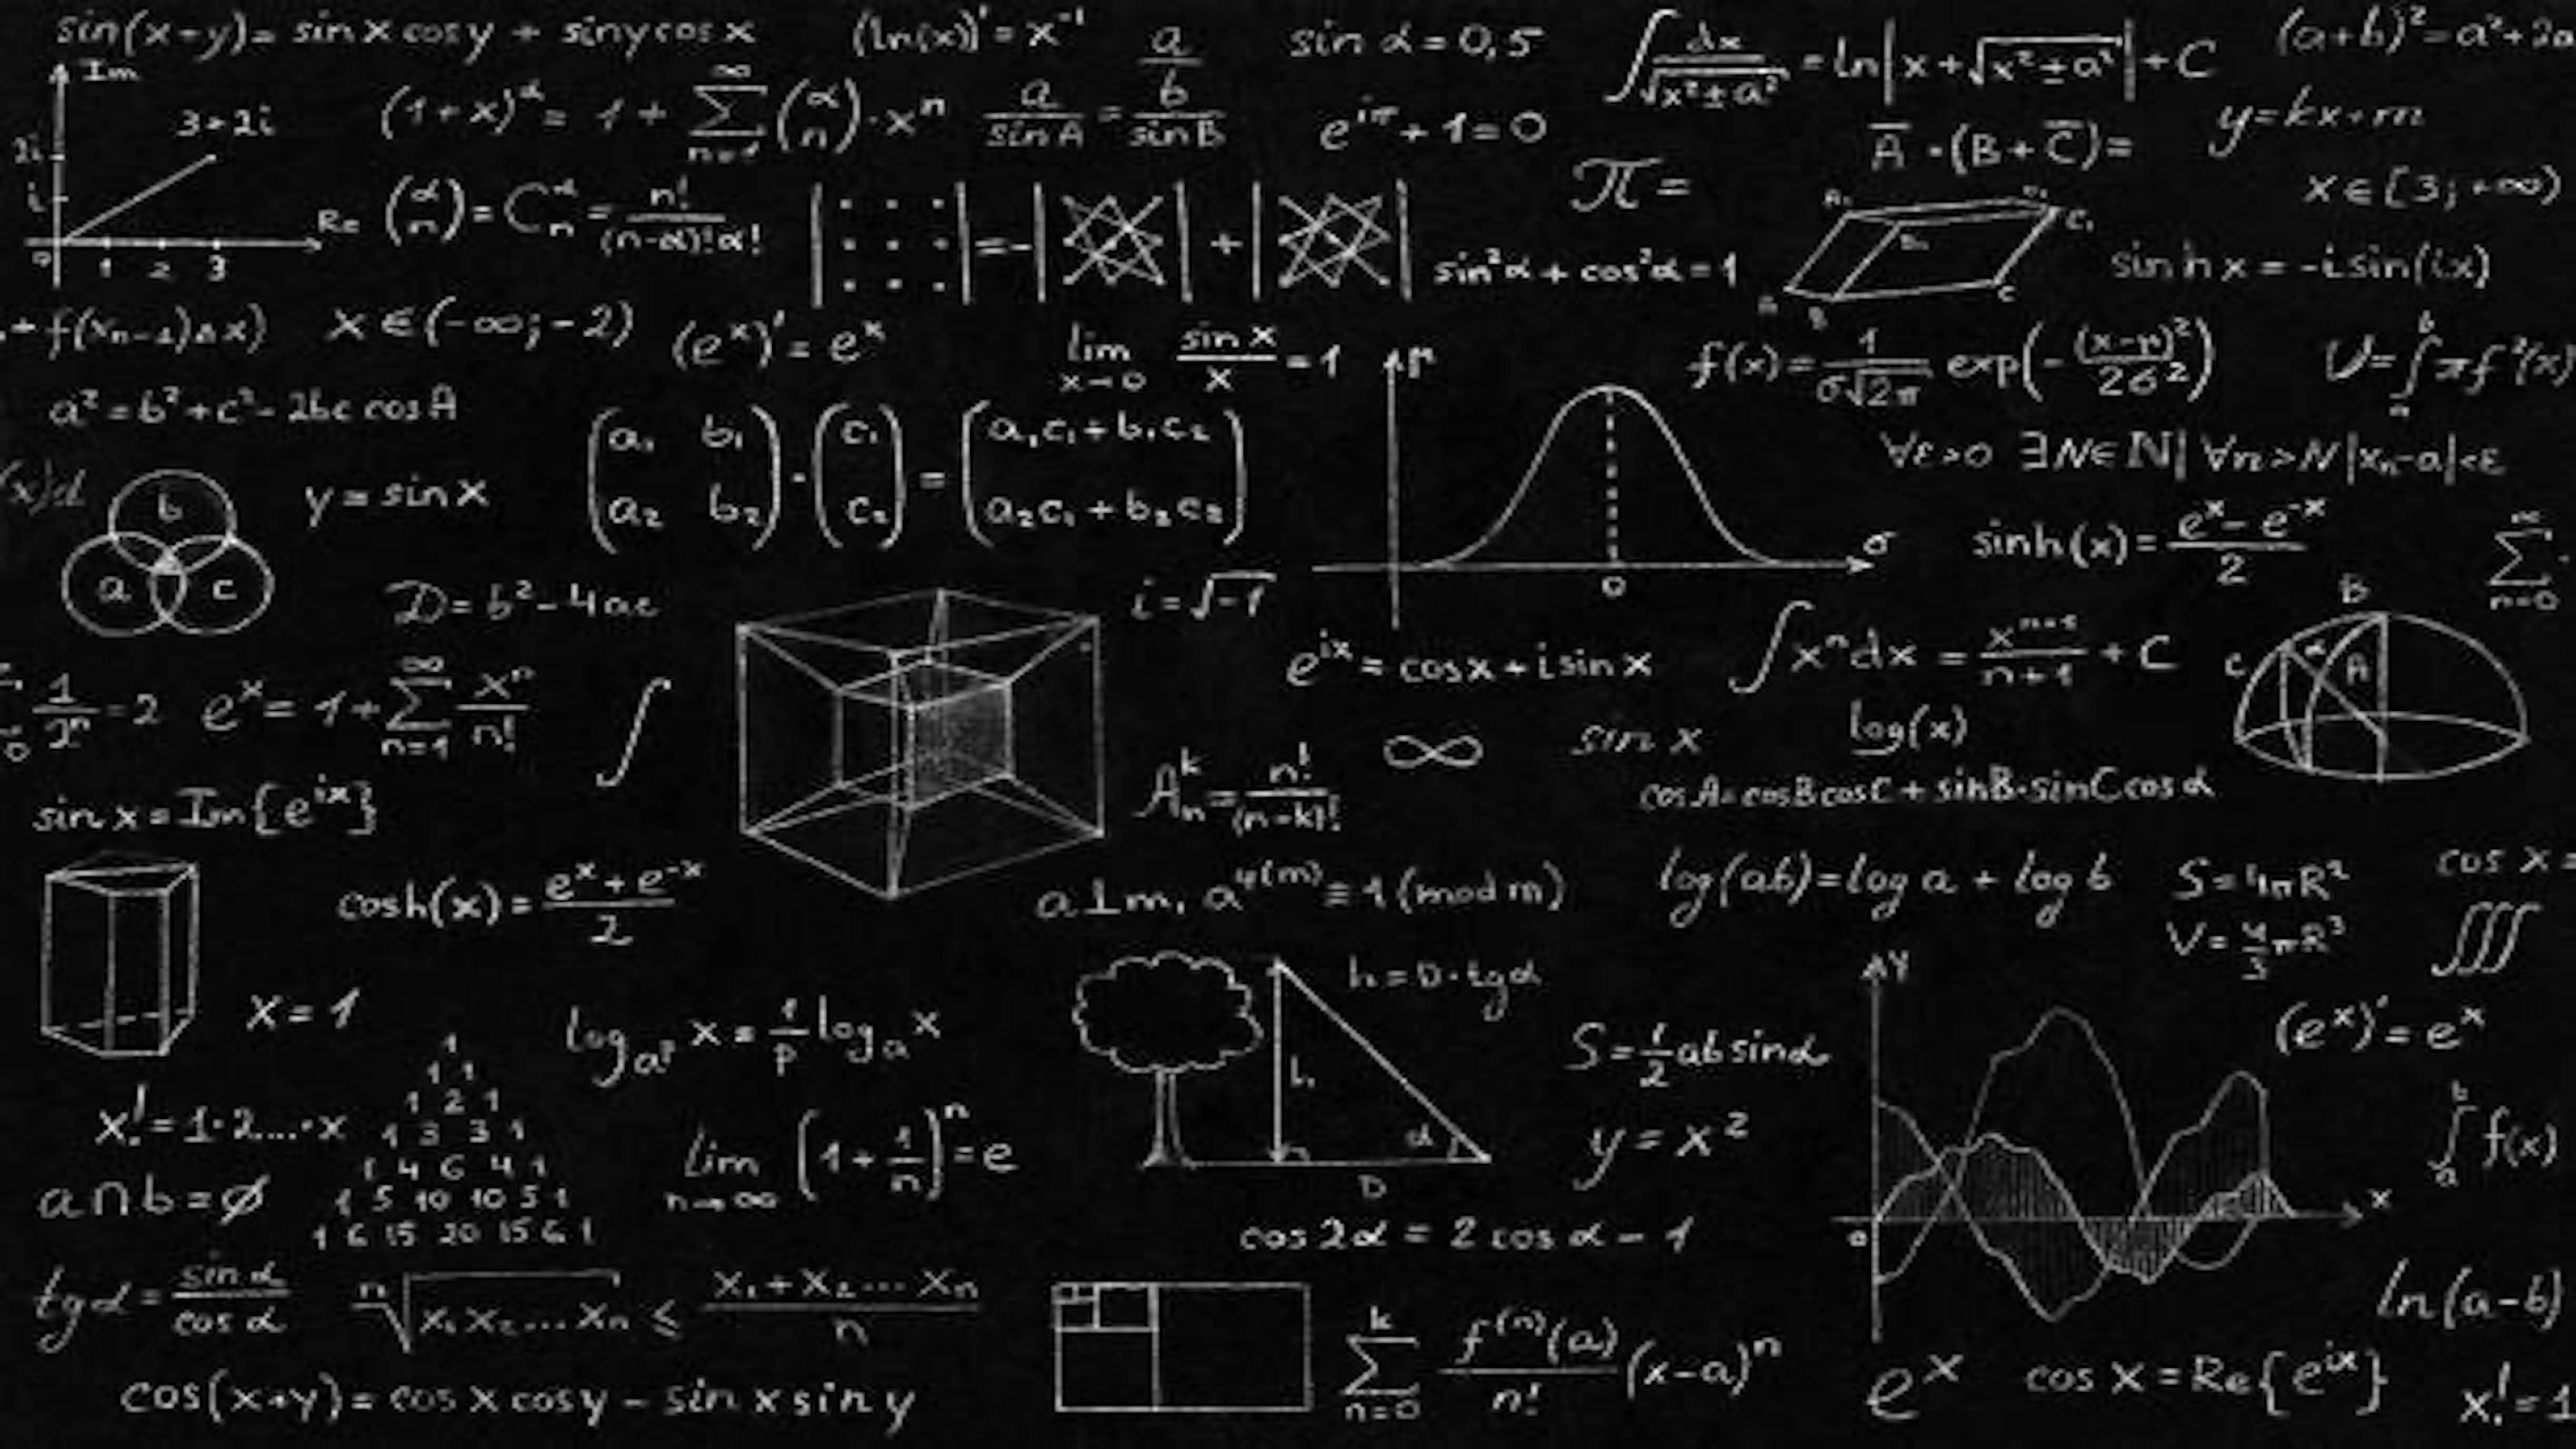 sin(x+y)= sin x cos y + sin y cos x
(ln(x))' = x⁻¹
sin α = 0,5
∫ dx/√(x²±a²) = ln|x+√(x²±a²)|+C
(a+b)² = a²+2a
Im
3+2i
2i
i
Re
0 1 2 3
(1+x)^α = 1 + ∑_{n=1}^{∞} (α n)·xⁿ
a/sin A = b/sin B
a/b
e^{iπ} + 1 = 0
A̅ · (B + C̅) =
y = kx+m
(α n) = C_n^α = n!/(n-α)!α!
π =
x ∈ [3; +∞)
= - +
sin²α + cos²α = 1
A₁ D₁ C₁ B₁ A B C
sinh x = -i sin(ix)
+ f(x_{n-1})Δx)
x ∈ (-∞; -2)
(eˣ)' = eˣ
lim_{x→0} sin x/x = 1
μ
σ
0
f(x) = 1/σ√2π exp(-(x-μ)²/2σ²)
V = ∫_a^b πf²(x)
a² = b² + c² - 2bc cos A
(a₁ b₁ a₂ b₂) · (c₁ c₂) = (a₁c₁ + b₁c₂ a₂c₁ + b₂c₂)
∀ε>0 ∃N∈ℕ| ∀n>N |xₙ-a|<ε
(x)d
b
a c
y = sin x
sinh(x) = eˣ - e⁻ˣ/2
∑_{n=0}^{∞}
D = b² - 4ac
i = √-1
B
C α A
1/2ⁿ = 2
eˣ = 1 + ∑_{n=1}^{∞} xⁿ/n!
∫
e^{ix} = cos x + i sin x
∫xⁿdx = x^{n+1}/n+1 + C
∞
sin x
log(x)
sin x = Im{e^{ix}}
A_n^k = n!/(n-k)!
cos A = cos B cos C + sin B · sin C cos α
cosh(x) = eˣ + e⁻ˣ/2
a⊥m, a^{φ(m)} ≡ 1 (mod m)
log(ab) = log a + log b
S = 4πR²
V = 4/3 πR³
cos x =
∭
x = 1
log_{a^p} x = 1/p log_a x
h = D · tg α
h
α
D
S = 1/2 ab sin α
y
x
0
(eˣ)' = eˣ
x! = 1·2...·x
1
1 1
1 2 1
1 3 3 1
1 4 6 4 1
1 5 10 10 5 1
1 6 15 20 15 6 1
lim_{n→∞} (1 + 1/n)ⁿ = e
y = x²
∫_a^b f(x)
a∩b = ∅
cos 2α = 2 cos α - 1
tg α = sin α/cos α
ⁿ√x₁x₂...xₙ ≤ x₁+x₂...xₙ/n
∑_{n=0}^{k} f^{(n)}(a)/n! (x-a)ⁿ
ln(a-b)
cos(x+y) = cos x cos y - sin x sin y
eˣ
cos x = Re{e^{ix}}
x! = 1